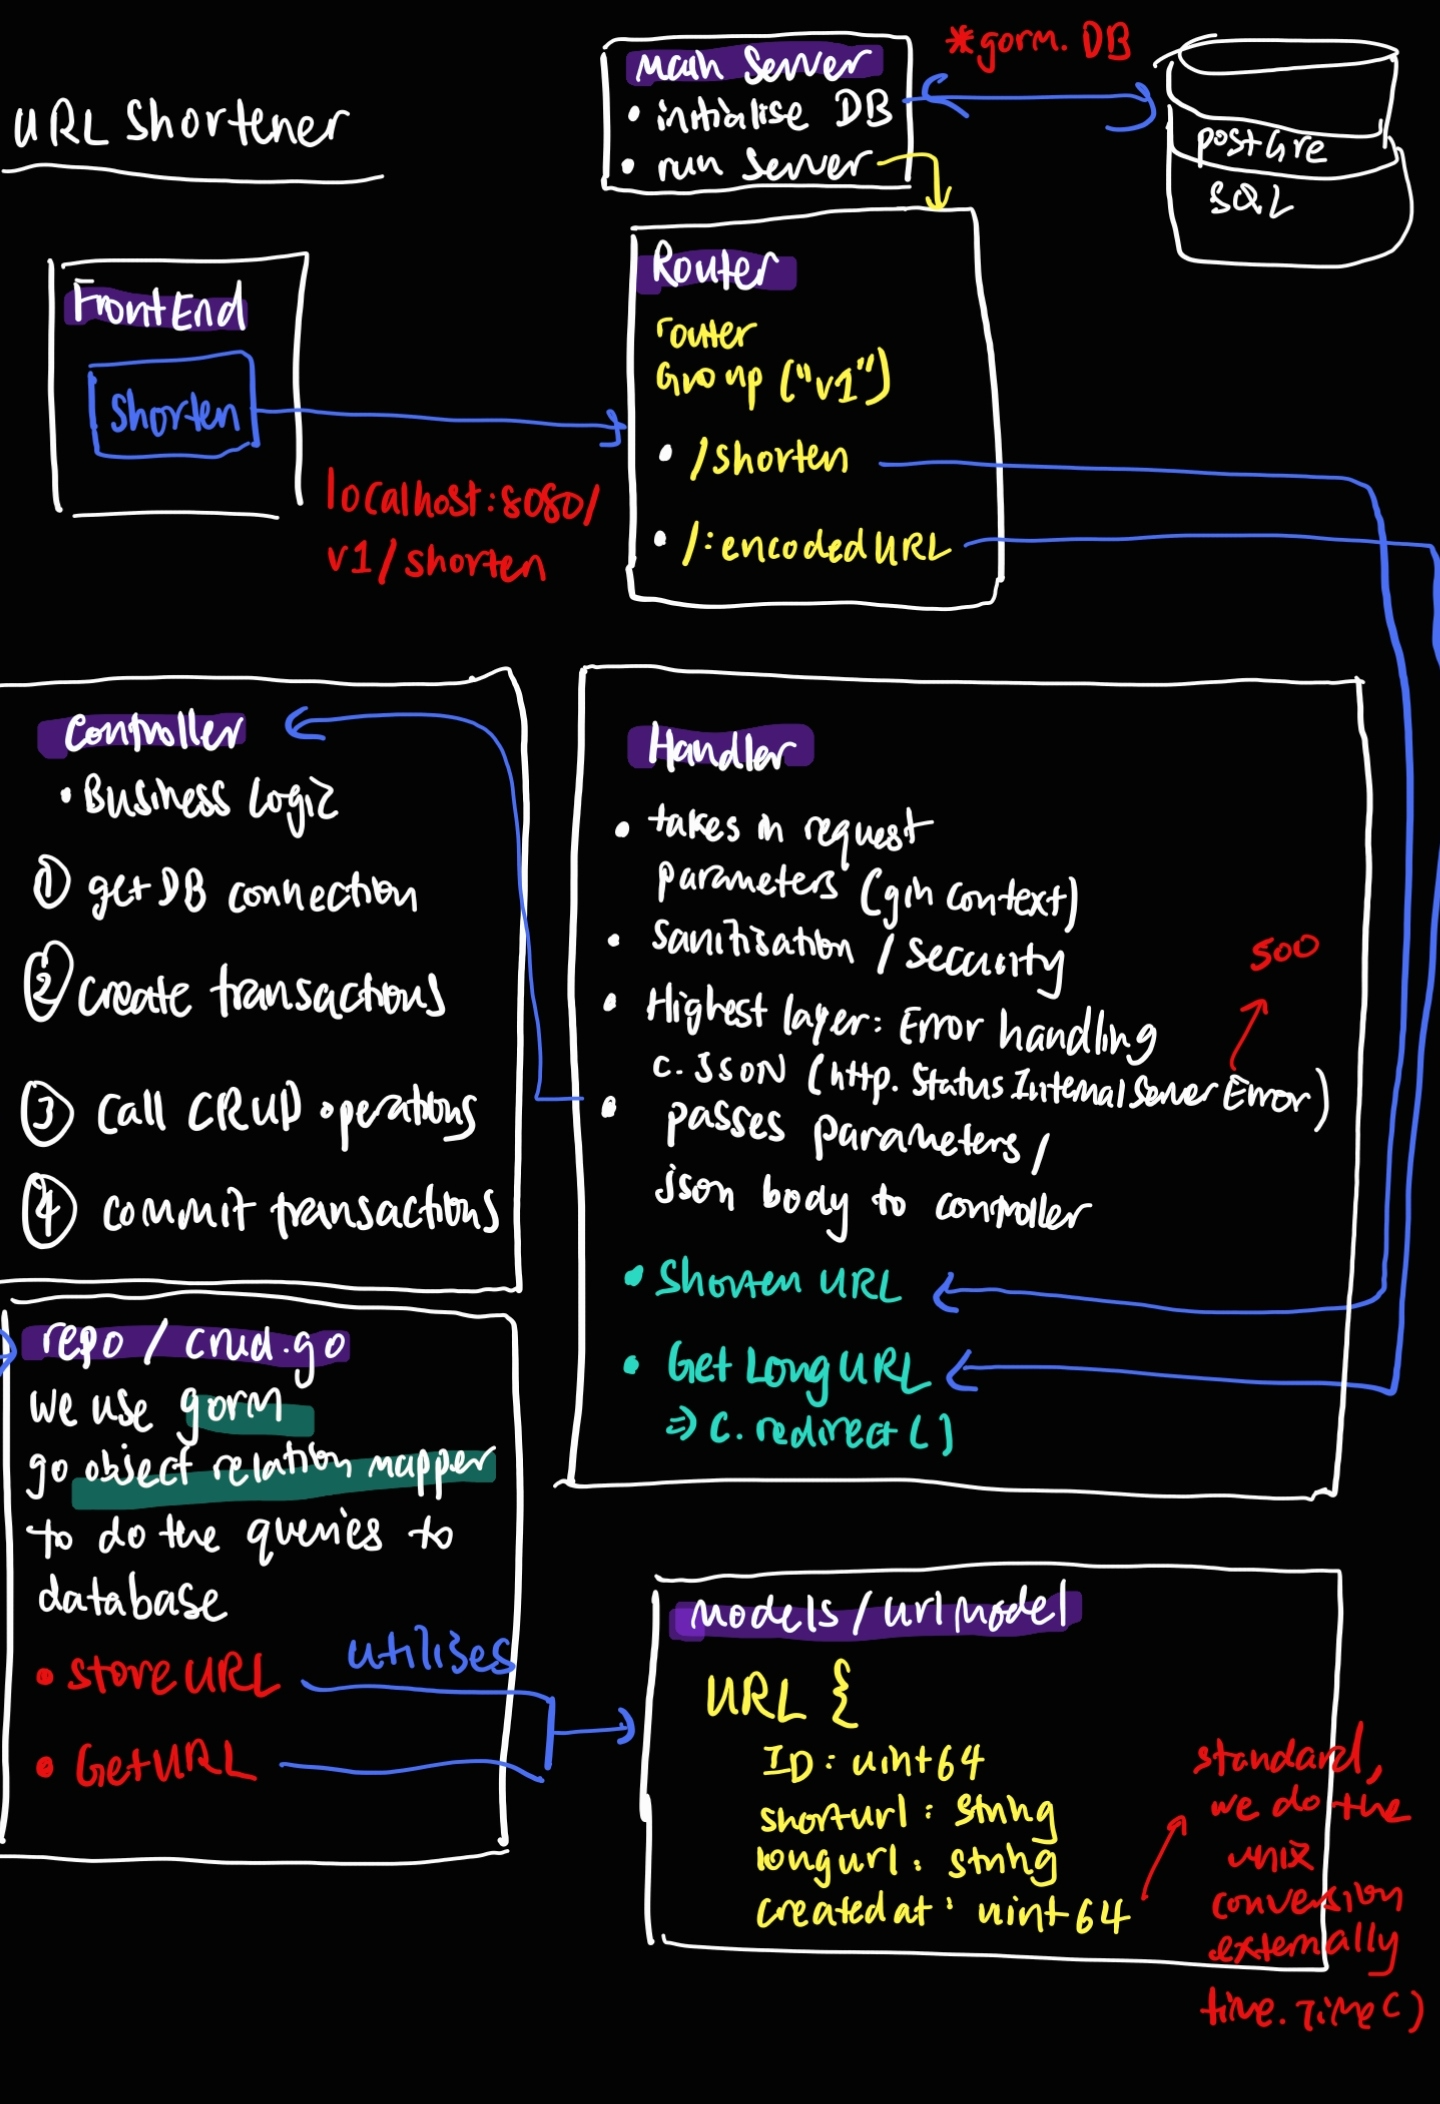 URL Shortener
Main Server
• initialise DB
• run server
*gorm. DB
postgre
SQL
FrontEnd
shorten
localhost:8080/
v1/shorten
Router
router
Group ("v1")
• /shorten
• /:encodedURL
Controller
• Business Logic
① get DB connection
② create transactions
③ call CRUD operations
④ commit transactions
Handler
• takes in request
parameters (gin context)
• sanitisation / security
• Highest layer: Error handling
c.JSON (http. Status Internal Server Error)
500
• passes parameters /
json body to controller
• Shorten URL
• Get Long URL
=> c. redirect ()
repo / crud.go
we use gorm
go object relation mapper
to do the queries to
database
• store URL
• Get URL
utilises
models / urlmodel
URL {
ID : uint64
shorturl : string
longurl : string
createdat : uint64
standard,
we do the
unix
conversion
externally
time.Time()